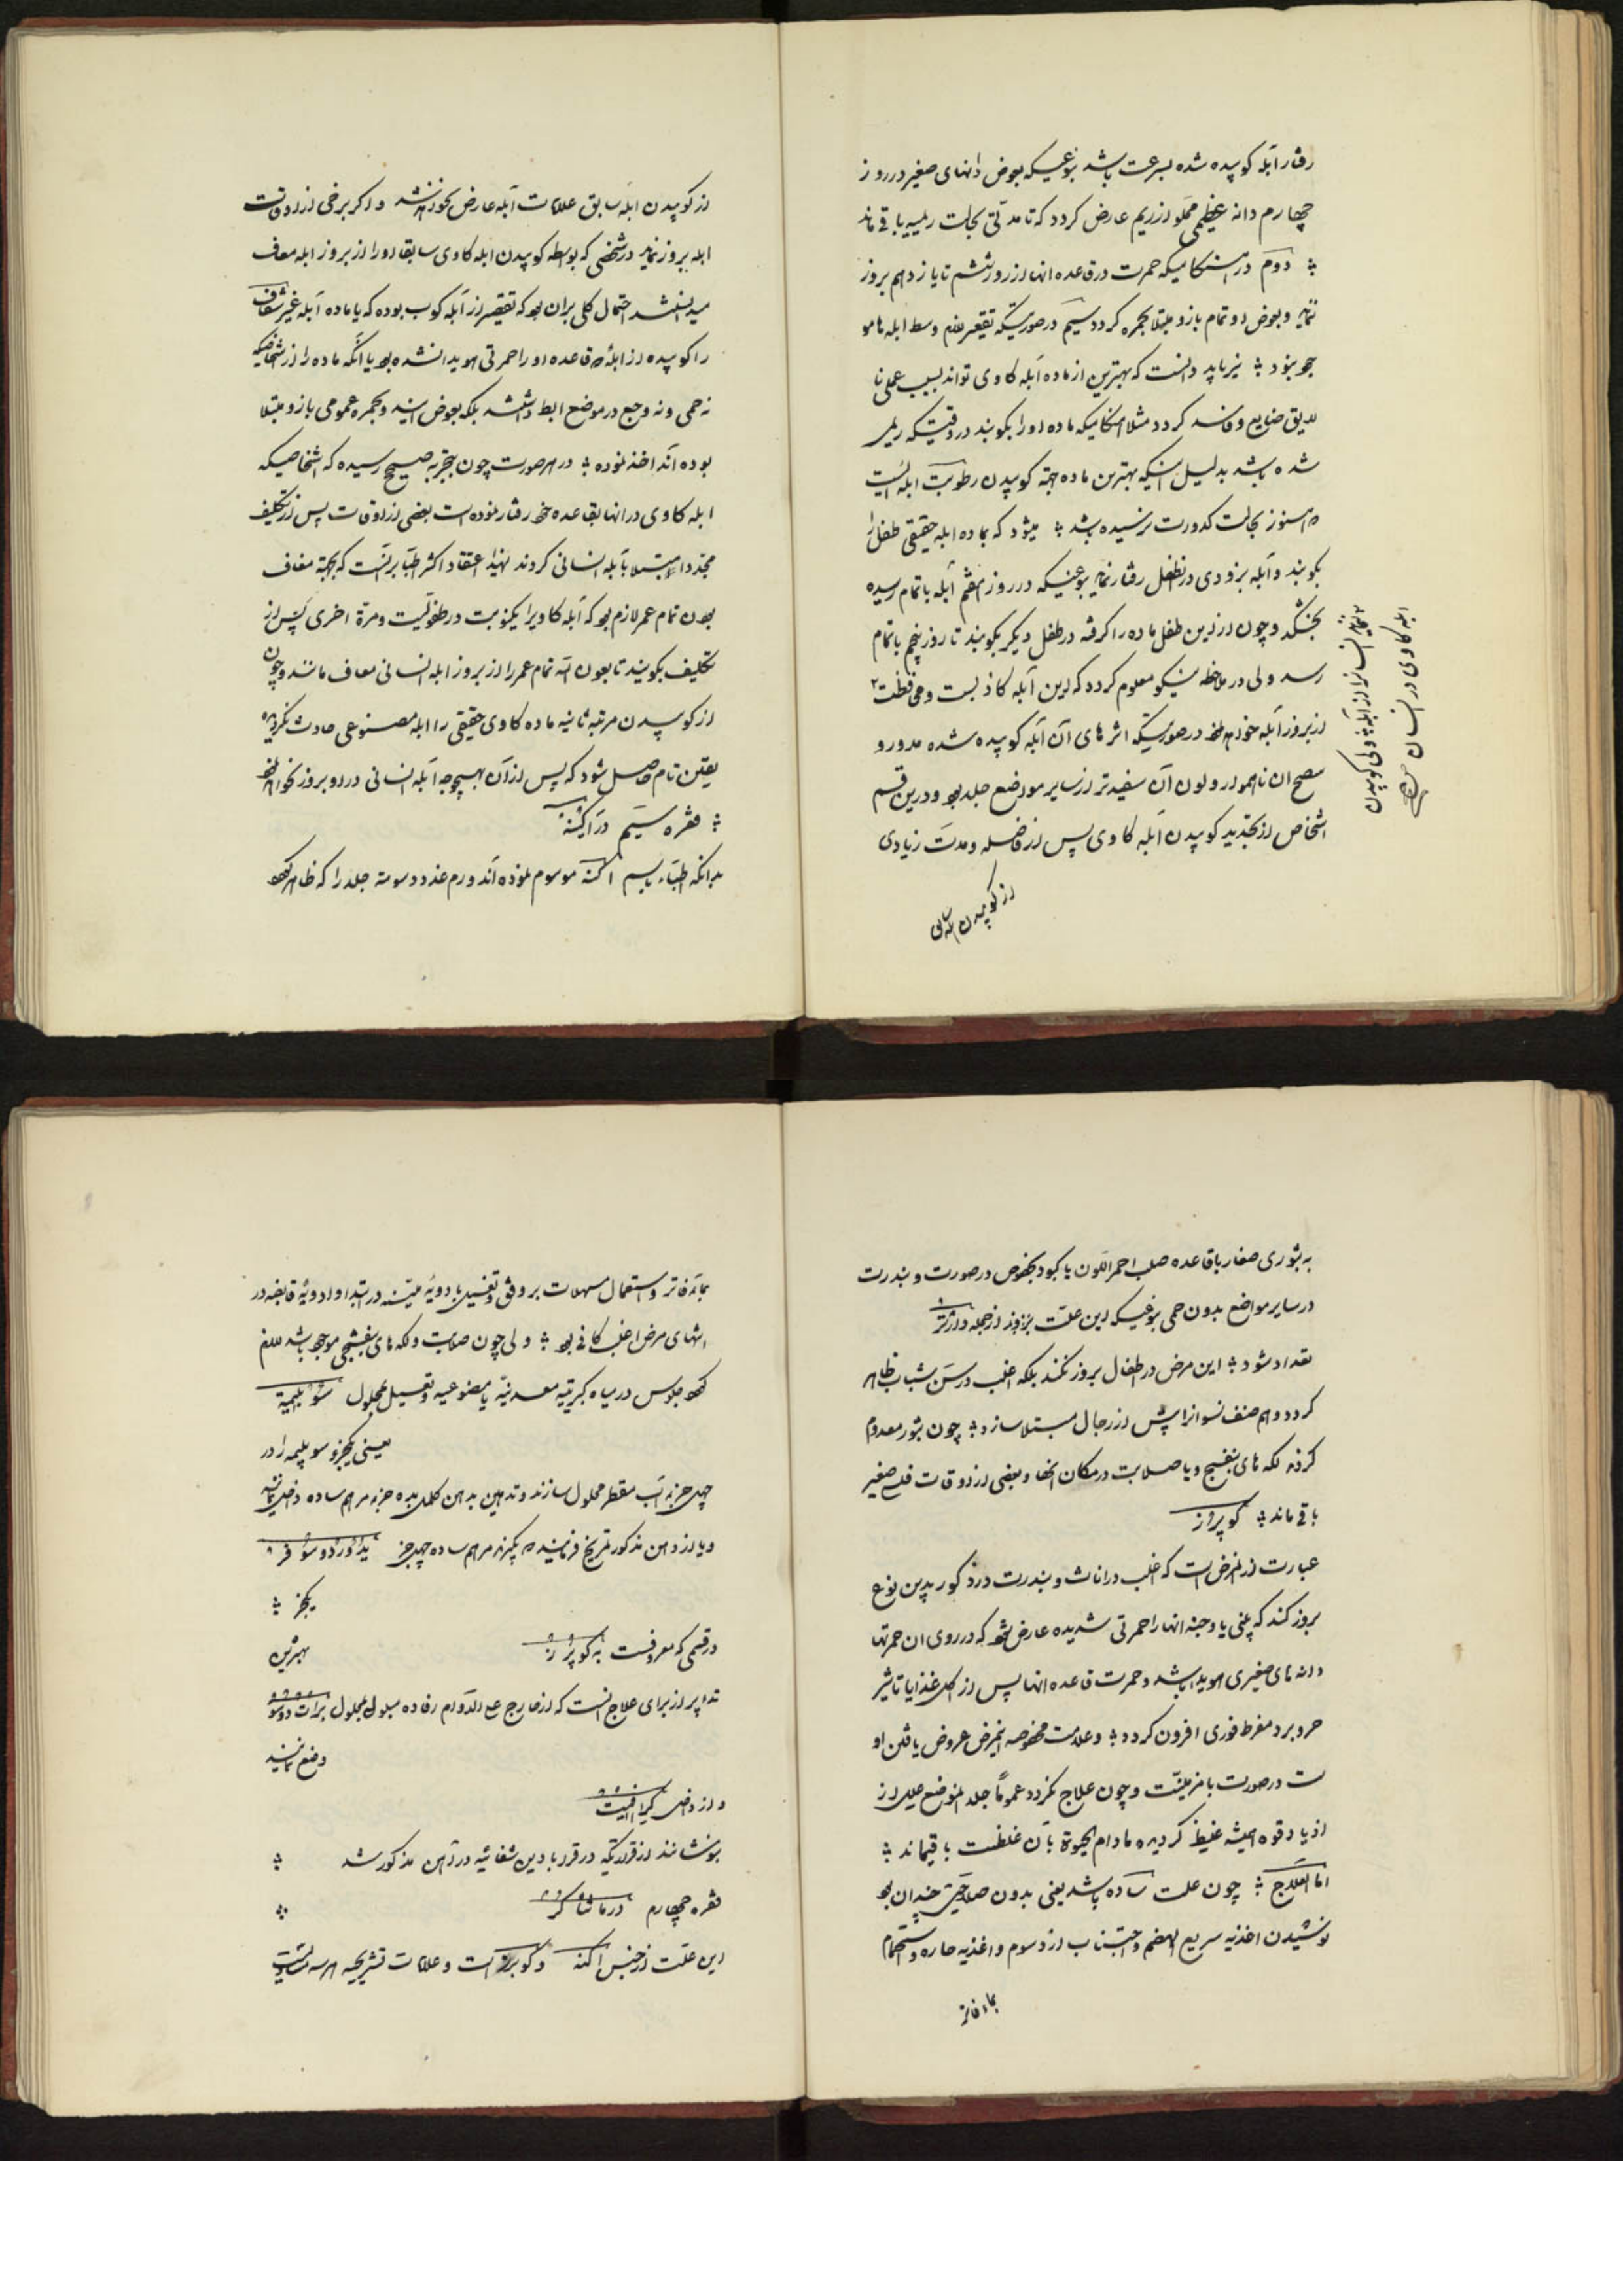 رفتار آبله کوبیده شده بسرعت باشد بنوعیکه بعوض دانهای صغیر در روز
چهارم دانه عظیمی مملو از ریم عارض کردد که تا مدتی بحالت ریمیه باقی ماند
دوم در هنکامیکه حمرت در قاعده انها از روز ششم تا یازدهم بروز
ننماید و بعوض او تمام بازو مبتلا بحمره کردد سیم در صورتیکه تقعیر وسط ابله نامو
جود بود نیز باید دانست که بهترین از ماده آبله کاوی تواند بسبب عملی نا
لایق ضایع و فاسد کردد مثلا هنکامیکه ماده او را بکوبند در وقتیکه ریمی
شده باشد بدلیل اینکه بهترین ماده بجهة کوبیدن رطوبت ابله ایست
که هنوز بحالت کدورت نرسیده باشد میشود که بماده ابله حقیقی طفل را
بکوبند و آبله بزودی در طفل رفتار نماید بنوعیکه در روز هفتم آبله باتمام رسیده
بخشکد و چون از این طفل ماده را کرفته در طفل دیکر بکوبند تا روز پنجم باتمام
رسد ولی در ملاحظه نیکو معلوم کردد که این آبله کاذبست و محافظت
از بروز آبله نخواهد نمود در صورتیکه اثرهای آن آبله کوبیده شده مدور و
سطح ان ناهموار و لون آن سفیدتر از سایر مواضع جلد بود و در این قسم
اشخاص از تجدید کوبیدن آبله کاوی پس از فاصله و مدت زیادی
از کوبیدن
ابله کاوی در انسان
از کوبیدن ابله سابق علامات آبله عارض نخواهند شد و اکر برخی از اوقات
ابله بروز نماید در شخصی که بواسطه کوبیدن ابله کاوی سابقا او را از بروز ابله معاف
میدانستند احتمال کلی بر ان بود که تقصیر از آبله کوب بوده که یا ماده آبله غیر شفاف
را کوبیده از ابلهٔ که قاعده او را حمرتی هویدا نشده بود یا آنکه ماده را از اشخاصیکه
نه حمی و نه وجع در موضع ابط داشته بلکه بعوض اینها بحمره عمومی بازو مبتلا
بوده اند اخذ نموده در هر صورت چون بتجربه صحیح رسیده که اشخاصیکه
ابله کاوی در انها بقاعده خود رفتار نموده است بعضی از اوقات پس از تکلیف
مجددا مبتلا بآبله انسانی کردند لهذا اعتقاد اکثر اطبا بر انست که بجهة معاف
بودن تمام عمر لازم بود که آبله کاویرا یکنوبت در طفولیت و مرة اخری پس از
تکلیف بکوبند تا بعون الله تمام عمر را از بروز ابله انسانی معاف مانند و چون
از کوبیدن مرتبه ثانیه ماده کاوی حقیقی را ابله مصنوعی حادث نکردید
یقین تام حاصل شود که پس از آن بهیچوجه آبله انسانی در او بروز نخواهد نمود
فقره سیم در آکنه
بدانکه اطباء باسم آکنه موسوم نموده اند ورم غدد دسومة جلد را که ظاهر کردد
به بثوری صغار باقاعده صلب احمر اللون یا کبود بخصوص در صورت و بندرت
در سایر مواضع بدون حمی بنوعیکه این علت بروز از جمله
تعداد شود این مرض در اطفال بروز نکند بلکه اغلب در سن شباب ظاهر
کردد و هم صنف نسوانرا بیش از رجال مبتلا سازد چون بثور معدوم
کردند لکه های بنفسج و یا صلابت در مکان انها و بعضی از اوقات قلع صغیر
باقی ماند کوپروز
عبارت از مرضی است که اغلب در اناث و بندرت در ذکور بدین نوع
بروز کند که بینی یا وجنه انها را حمرتی شدیده عارض شود که در روی ان حمرتها
دانه های صغیری هویدا باشد و حمرت قاعده انها پس از اکل غذا یا تاثیر
حر و برد مفرط فوری افزون کردد و علامت مخصوصه اینمرض عروض یافتن او
ست در صورت با مزمنیت و چون علاج نکردد عموماً جلد انموضع علیل از
ازدیاد قوه همیشه غلیظ کردیده مادام الحیوة بآن غلظت باقیماند
اما العلاج چون علت ساده باشد یعنی بدون صلابتی چندان بود
نوشیدن اغذیه سریع الهضم و اجتناب از دسوم و اغذیه حاره و استحمام
بماء فاتر
بماء فاتر و استعمال مسهلات بر وفق و تغسیل بادویه ملینه در ابتدا و ادویهٔ قابضه در
انتهای مرض اغلب کافی بود ولی چون صلابت و لکه های بنفسجی موجود باشد لازم
بود جلوس در میاه کبریتیه معدنیه یا مصنوعیه و تغسیل بمحلول سوبلیمه
یعنی یکجزو سوبلیمه را در
چهل جزء آب مقطر محلول سازند و تدهین بدهن کلمل بده جزء مرهم ساده داخل نمایند
و یا از دهن مذکور تمریخ فرمایند که یکجزء مرهم ساده چهل جز
یکجز
در قسمی که معروفست به کوپرز بهترین
تدابیر از برای علاج انست که از خارج علی الدوام رفاده مبلول بمحلول برات دو سود
وضع نمایند
و از داخل
بنوشانند از قراریکه در قرابادین شفائیه در آهن مذکور شد
فقره چهارم در
این علت از جنس آکنه و کوپرز است و علامات تشریحیه هر سه